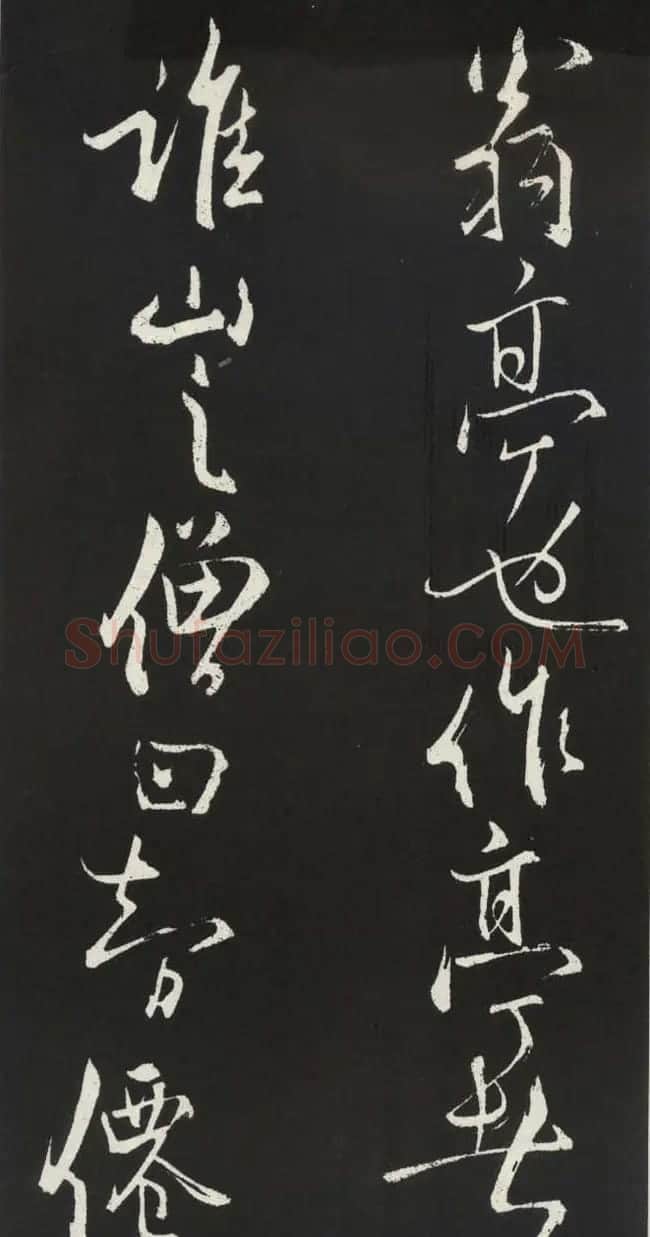 翁亭也作亭者
誰山之僧曰智僊
Shufaziliao.COM